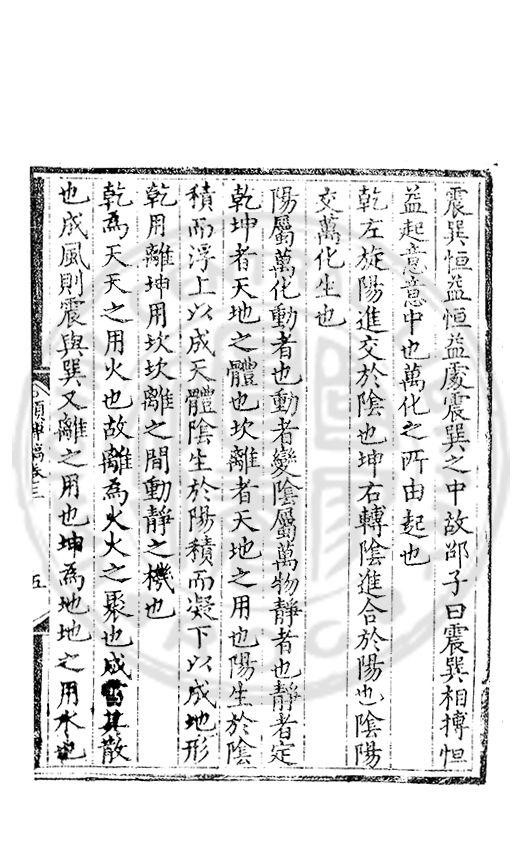 震巽恒益恒益處震巽之中故邵子曰震巽相摶恒
益起意意中也萬化之所由起也
乾左旋陽進交於陰也坤右轉陰進合於陽也陰陽
交萬化生也
陽屬萬化動者也動者變陰屬萬物靜者也靜者定
乾坤者天地之體也坎離者天地之用也陽生於陰
積而浮上以成天體陰生於陽積而凝下以成地形
乾用離坤用坎坎離之間動靜之機也
乾為天天之用火也故離為火火之聚也成雷其散
也成風則震與巽又離之用也坤為地地之用水也
稿卷三
五